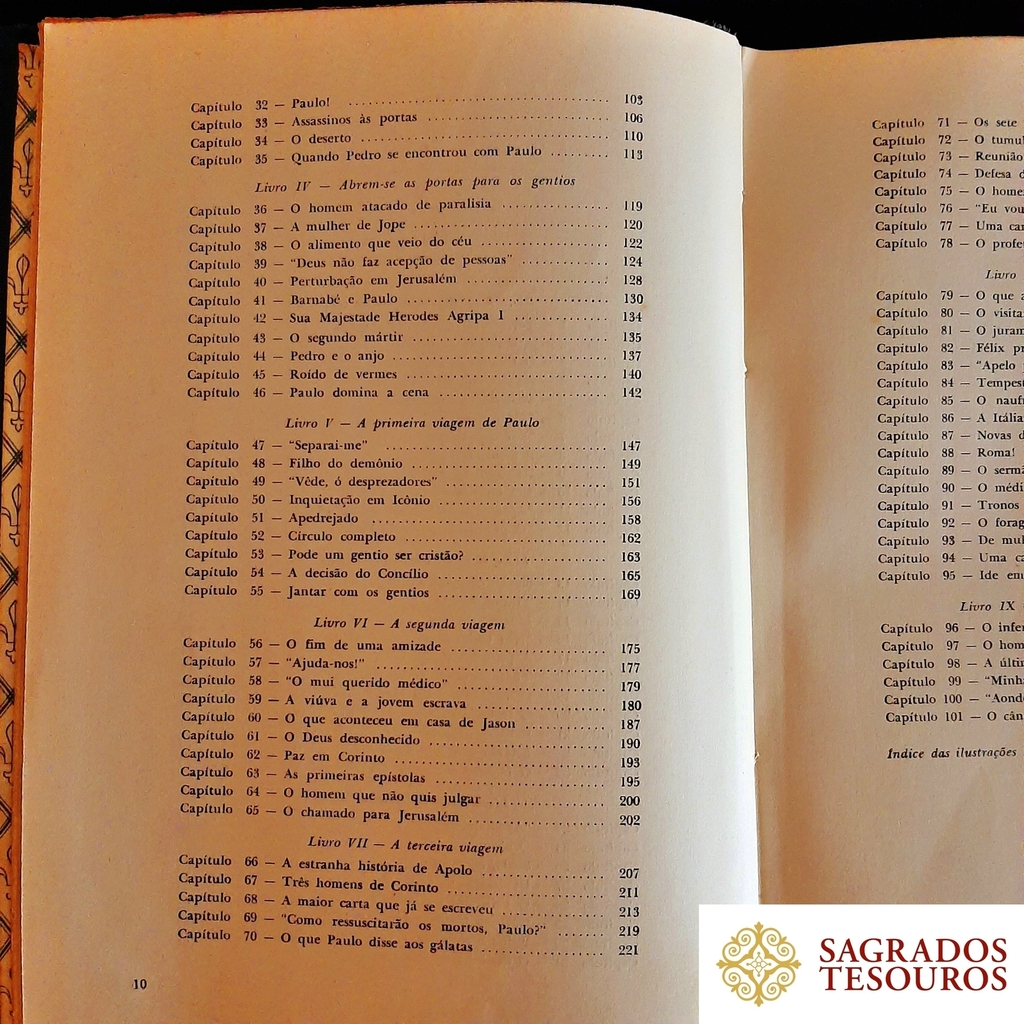 Capítulo 32 — Paulo! .................................. 103
Capítulo 33 — Assassinos às portas ........................ 106
Capítulo 34 — O deserto ................................ 110
Capítulo 35 — Quando Pedro se encontrou com Paulo ......... 113
Livro IV — Abrem-se as portas para os gentios
Capítulo 36 — O homem atacado de paralisia .............. 119
Capítulo 37 — A mulher de Jope ......................... 120
Capítulo 38 — O alimento que veio do céu ................ 122
Capítulo 39 — "Deus não faz acepção de pessoas" ............. 124
Capítulo 40 — Perturbação em Jerusalém .................. 128
Capítulo 41 — Barnabé e Paulo .......................... 130
Capítulo 42 — Sua Majestade Herodes Agripa I ............. 134
Capítulo 43 — O segundo mártir ......................... 135
Capítulo 44 — Pedro e o anjo ............................ 137
Capítulo 45 — Roído de vermes .......................... 140
Capítulo 46 — Paulo domina a cena ...................... 142
Livro V — A primeira viagem de Paulo
Capítulo 47 — "Separai-me" ............................. 147
Capítulo 48 — Filho do demónio ......................... 149
Capítulo 49 — "Vêde, ó desprezadores" .................... 151
Capítulo 50 — Inquietação em Icônio ..................... 156
Capítulo 51 — Apedrejado ............................... 158
Capítulo 52 — Círculo completo .......................... 162
Capítulo 53 — Pode um gentio ser cristão? ................. 163
Capítulo 54 — A decisão do Concílio ...................... 165
Capítulo 55 — Jantar com os gentios ...................... 169
Livro VI — A segunda viagem
Capítulo 56 — O fim de uma amizade .................... 175
Capítulo 57 — "Ajuda-nos!" .............................. 177
Capítulo 58 — "O mui querido médico" ................... 179
Capítulo 59 — A viúva e a jovem escrava .................. 180
Capítulo 60 — O que aconteceu em casa de Jason ........... 187
Capítulo 61 — O Deus desconhecido ...................... 190
Capítulo 62 — Paz em Corinto ........................... 193
Capítulo 63 — As primeiras epístolas ...................... 195
Capítulo 64 — O homem que não quis julgar ............... 200
Capítulo 65 — O chamado para Jerusalém ................. 202
Livro VII — A terceira viagem
Capítulo 66 — A estranha história de Apolo ............... 207
Capítulo 67 — Três homens de Corinto ................... 211
Capítulo 68 — A maior carta que já se escreveu ............. 213
Capítulo 69 — "Como ressuscitarão os mortos, Paulo?" ....... 219
Capítulo 70 — O que Paulo disse aos gálatas ............... 221
10
Capítulo 71 — Os sete
Capítulo 72 — O tumul
Capítulo 73 — Reunião
Capítulo 74 — Defesa d
Capítulo 75 — O home
Capítulo 76 — "Eu vou
Capítulo 77 — Uma car
Capítulo 78 — O profe
Livro
Capítulo 79 — O que a
Capítulo 80 — O visita
Capítulo 81 — O juram
Capítulo 82 — Félix pr
Capítulo 83 — "Apelo
Capítulo 84 — Tempest
Capítulo 85 — O naufr
Capítulo 86 — A Itália
Capítulo 87 — Novas d
Capítulo 88 — Roma!
Capítulo 89 — O sermã
Capítulo 90 — O médi
Capítulo 91 — Tronos
Capítulo 92 — O forag
Capítulo 93 — De mul
Capítulo 94 — Uma ca
Capítulo 95 — Ide em
Livro IX
Capítulo 96 — O infer
Capítulo 97 — O hom
Capítulo 98 — A últir
Capítulo 99 — "Minha
Capítulo 100 — "Aonde
Capítulo 101 — O cân
Indice das ilustrações
SAGRADOS
TESOUROS